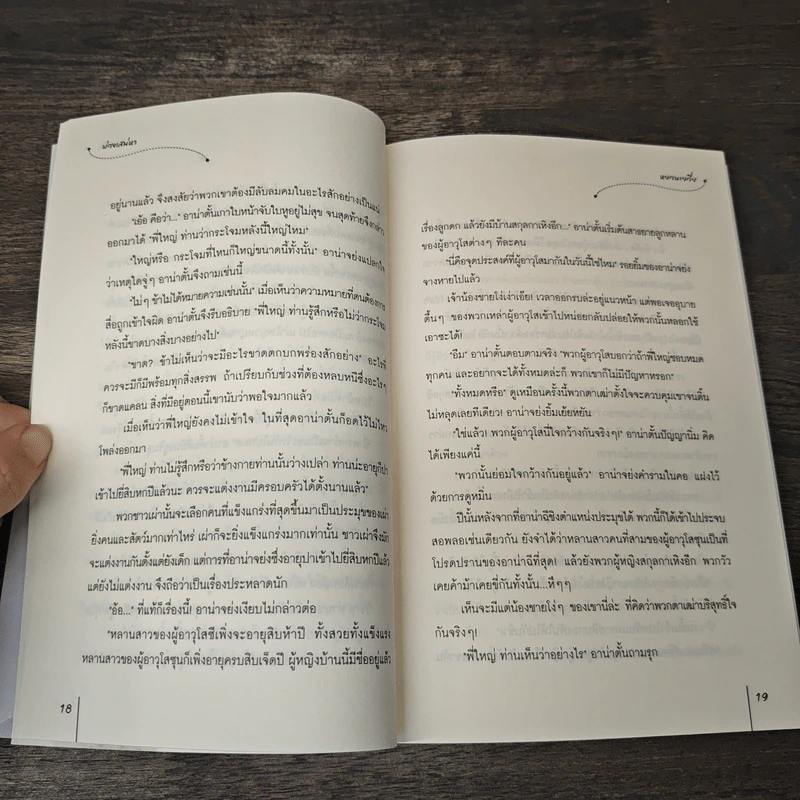 ม่านเสน่หา
อยู่นานแล้ว จึงสงสัยว่าพวกเขาต้องมีลับลมคมในอะไรสักอย่างเป็นแน่
"เอ้อ คือว่า..." อาน่าตั้นเกาใบหน้าจับใบหูอยู่ไม่สุข จนสุดท้ายจึงกล่าว
ออกมาได้ "พี่ใหญ่ ท่านว่ากระโจมหลังนี้ใหญ่ไหม"
"ใหญ่หรือ กระโจมที่ไหนก็ใหญ่ขนาดนี้ทั้งนั้น" อาน่าจยงแปลกใจ
ว่าเหตุใดจู่ๆ อาน่าตั้นจึงถามเช่นนี้
"ไม่ๆ ข้าไม่ได้หมายความเช่นนั้น" เมื่อเห็นว่าความหมายที่ตนต้องการ
สื่อถูกเข้าใจผิด อาน่าตั้นจึงรีบอธิบาย "พี่ใหญ่ ท่านรู้สึกหรือไม่ว่ากระโจม
หลังนี้ขาดบางสิ่งบางอย่างไป"
"ขาด? ข้าไม่เห็นว่าจะมีอะไรขาดตกบกพร่องสักอย่าง" อะไรที่
ควรจะมีก็มีพร้อมทุกสิ่งสรรพ ถ้าเปรียบกับช่วงที่ต้องหลบหนีซึ่งอะไรๆ
ก็ขาดแคลน สิ่งที่มีอยู่ตอนนี้เขานับว่าพอใจมากแล้ว
เมื่อเห็นว่าพี่ใหญ่ยังคงไม่เข้าใจ ในที่สุดอาน่าตั้นก็อดไว้ไม่ไหว
โพล่งออกมา
"พี่ใหญ่ ท่านไม่รู้สึกหรือว่าข้างกายท่านนั้นว่างเปล่า ท่านน่ะอายุก็ปา
เข้าไปยี่สิบกปีแล้วนะ ควรจะแต่งงานมีครอบครัวได้ตั้งนานแล้ว"
พวกชาวเผ่านั้นจะเลือกคนที่แข็งแกร่งที่สุดขึ้นมาเป็นประมุขของเผ่า
ยิ่งคนและสัตว์มากเท่าไหร่ เผ่าก็จะยิ่งแข็งแกร่งมากเท่านั้น ชาวเผ่าจึงมัก
จะแต่งงานกันตั้งแต่ยังเด็ก แต่การที่อาน่าจยงซึ่งอายุปาเข้าไปยี่สิบหกปีแล้ว
แต่ยังไม่แต่งงาน จึงถือว่าเป็นเรื่องประหลาดนัก
"อ้อ..." ที่แท้ก็เรื่องนี้! อาน่าจยงเงียบไม่กล่าวต่อ
"หลานสาวของผู้อาวุโสซีเพิ่งจะอายุสิบห้าปี ทั้งสวยทั้งแข็งแรง
หลานสาวของผู้อาวุโสซุนก็เพิ่งอายุครบสิบเจ็ดปี ผู้หญิงบ้านนี้มีชื่ออยู่แล้ว
18
เรื่องลูกดก แล้วยังมีบ้านสกุลกาเหิงอีก..." อาน่าตั้นเริ่มต้นสาธยายลูกหลาน
ของผู้อาวุโสต่างๆ ทีละคน
"นี่คือจุดประสงค์ที่ผู้อาวุโสมากันในวันนี้ใช่ไหม" รอยยิ้มของอาน่าจยง
จางหายไปแล้ว
เจ้าน้องชายโง่เง่าเอ๊ย! เวลาออกรบล่ะอยู่แนวหน้า แต่พอเจออุบาย
ตื้นๆ ของพวกเหล่าผู้อาวุโสเข้าไปหน่อยกลับปล่อยให้พวกนั้นหลอกใช้
เอาซะได้!
"อืม" อาน่าตั้นตอบตามจริง "พวกผู้อาวุโสบอกว่าถ้าพี่ใหญ่ชอบหมด
ทุกคน และอยากจะได้ทั้งหมดล่ะก็ พวกเขาก็ไม่มีปัญหาหรอก"
"ทั้งหมดหรือ" ดูเหมือนครั้งนี้พวกเฒ่าตั้งใจจะควบคุมเขาจนดิ้น
ไม่หลุดเลยทีเดียว! อาน่าจยงยิ้มเย้ยหยัน
"ใช่แล้ว! พวกผู้อาวุโสนี่ใจกว้างกันจริงๆ!" อาน่าตั้นปัญญานิ่ม คิด
ได้เพียงแค่นี้
"พวกนั้นย่อมใจกว้างกันอยู่แล้ว" อาน่าจยงคำรามในคอ แฝงไว้
ด้วยการดูหมิ่น
ปีนั้นหลังจากที่อาน่าฉีชิงตำแหน่งประมุขได้ พวกนี้ก็ได้เข้าไปประจบ
สอพลอเช่นเดียวกัน ยังจำได้ว่าหลานสาวคนที่สามของผู้อาวุโสซุนเป็นที่
โปรดปรานของอาน่าฉีที่สุด! แล้วยังพวกผู้หญิงสกุลกาเหิงอีก พวกวัว
เคยค้าม้าเคยขี่กันทั้งนั้น...หึๆๆ
เห็นจะมีแต่น้องชายโง่ๆ ของเขานี่ล่ะ ที่คิดว่าพวกตาเฒ่าบริสุทธิ์ใจ
กันจริงๆ!
"พี่ใหญ่ ท่านเห็นว่าอย่างไร" อาน่าตั้นถามรุก
19